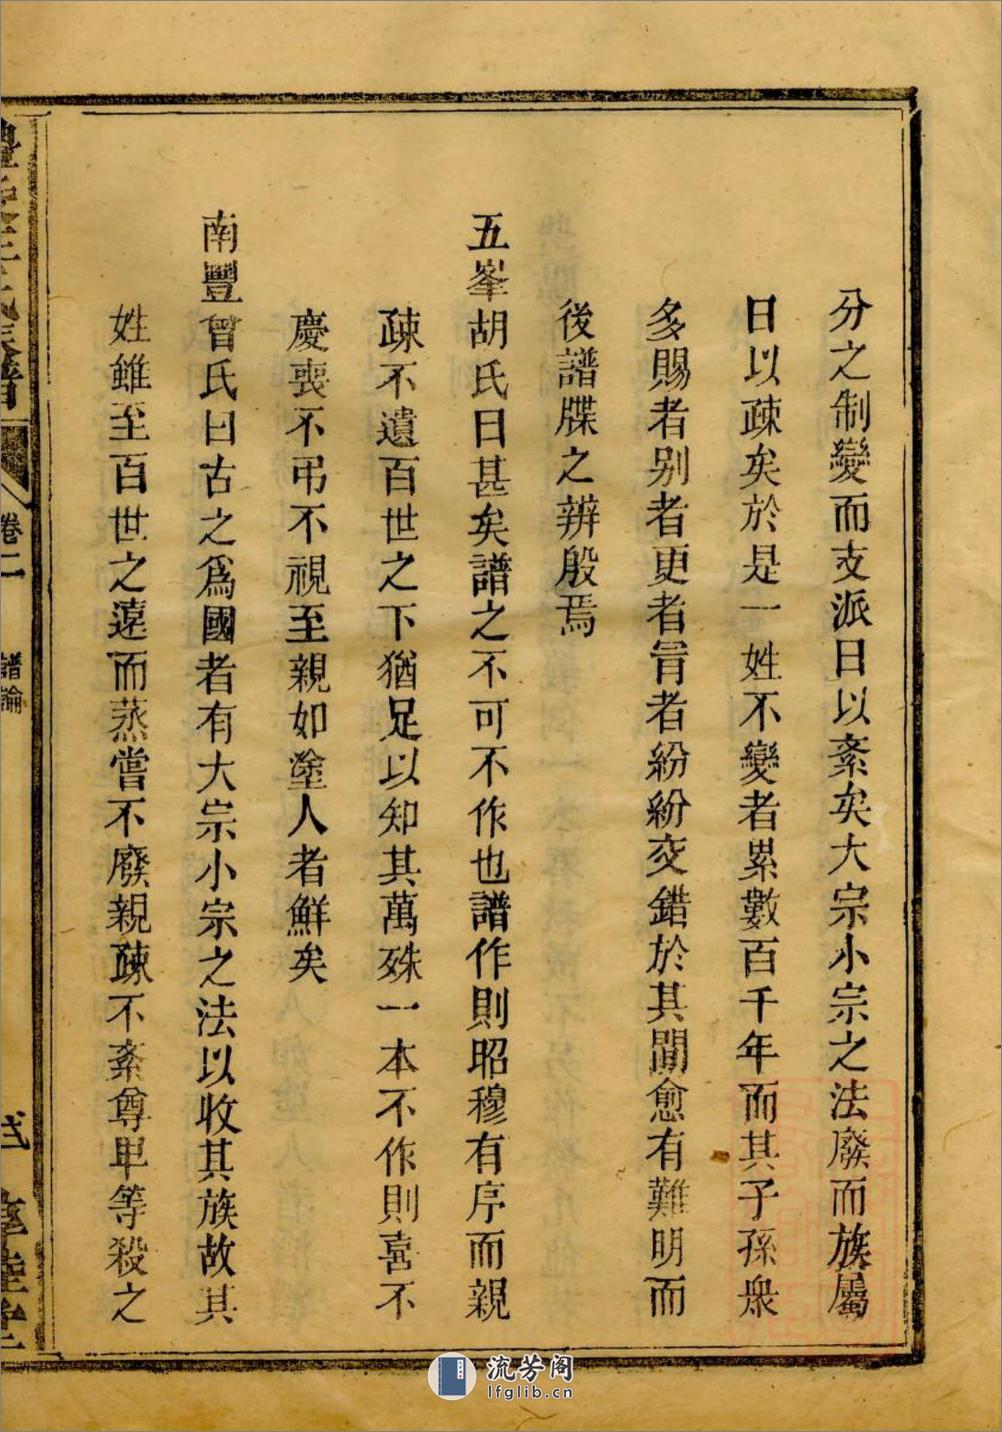 分之制變而支派日以紊矣大宗小宗之法廢而族屬
日以疎矣於是一姓不變者累數百千年而其子孫衆
多賜者别者更者冐者紛紛交錯於其閒愈有難明而
後譜牒之辨殷焉
五峯胡氏曰甚矣譜之不可不作也譜作則昭穆有序而親
疎不遺百世之下猶足以知其萬殊一本不作則喜不
慶喪不弔不視至親如塗人者鮮矣
南豐曾氏曰古之爲國者有大宗小宗之法以收其族故其
姓雖至百世之遠而蒸嘗不廢親疎不紊尊卑等殺之
卷二
譜論
流芳阁
lfglib.cn